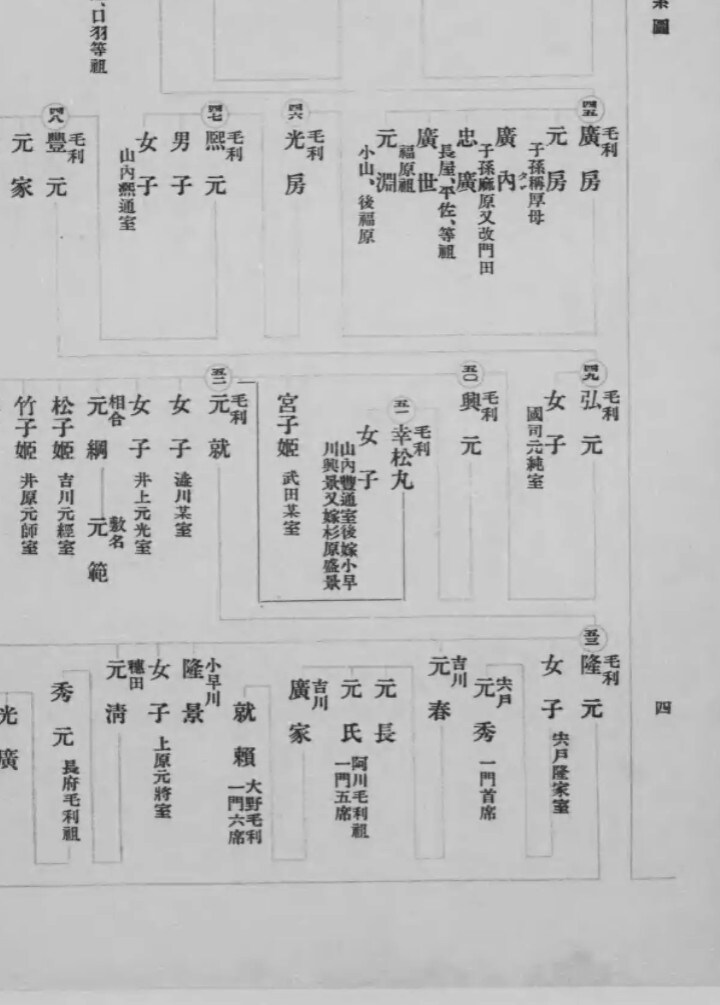 系圖
、口羽等祖
四五
毛利
廣房
元房
子孫稱厚母
廣內
タン
子孫麻原又改門田
忠廣
長屋、平佐、等祖
廣世
福原祖
元淵
小山、後福原
四六
毛利
光房
四七
毛利
熙元
男子
女子
山內熙通室
四八
毛利
豐元
元家
四九
毛利
弘元
女子
國司元純室
五〇
毛利
興元
五一
毛利
幸松丸
女子
山內豐通室後嫁小早
川興景又嫁杉原盛景
宮子姬
武田某室
五二
毛利
元就
女子
澁川某室
女子
井上元光室
相合
元綱
敷名
元範
松子姬
吉川元經室
竹子姬
井原元師室
五三
毛利
隆元
女子
宍戶隆家室
宍戶
元秀
一門首席
吉川
元春
元長
元氏
阿川毛利祖
一門五席
吉川
廣家
就賴
大野毛利
一門六席
小早川
隆景
女子
上原元將室
穗田
元淸
秀元
長府毛利祖
光廣
四